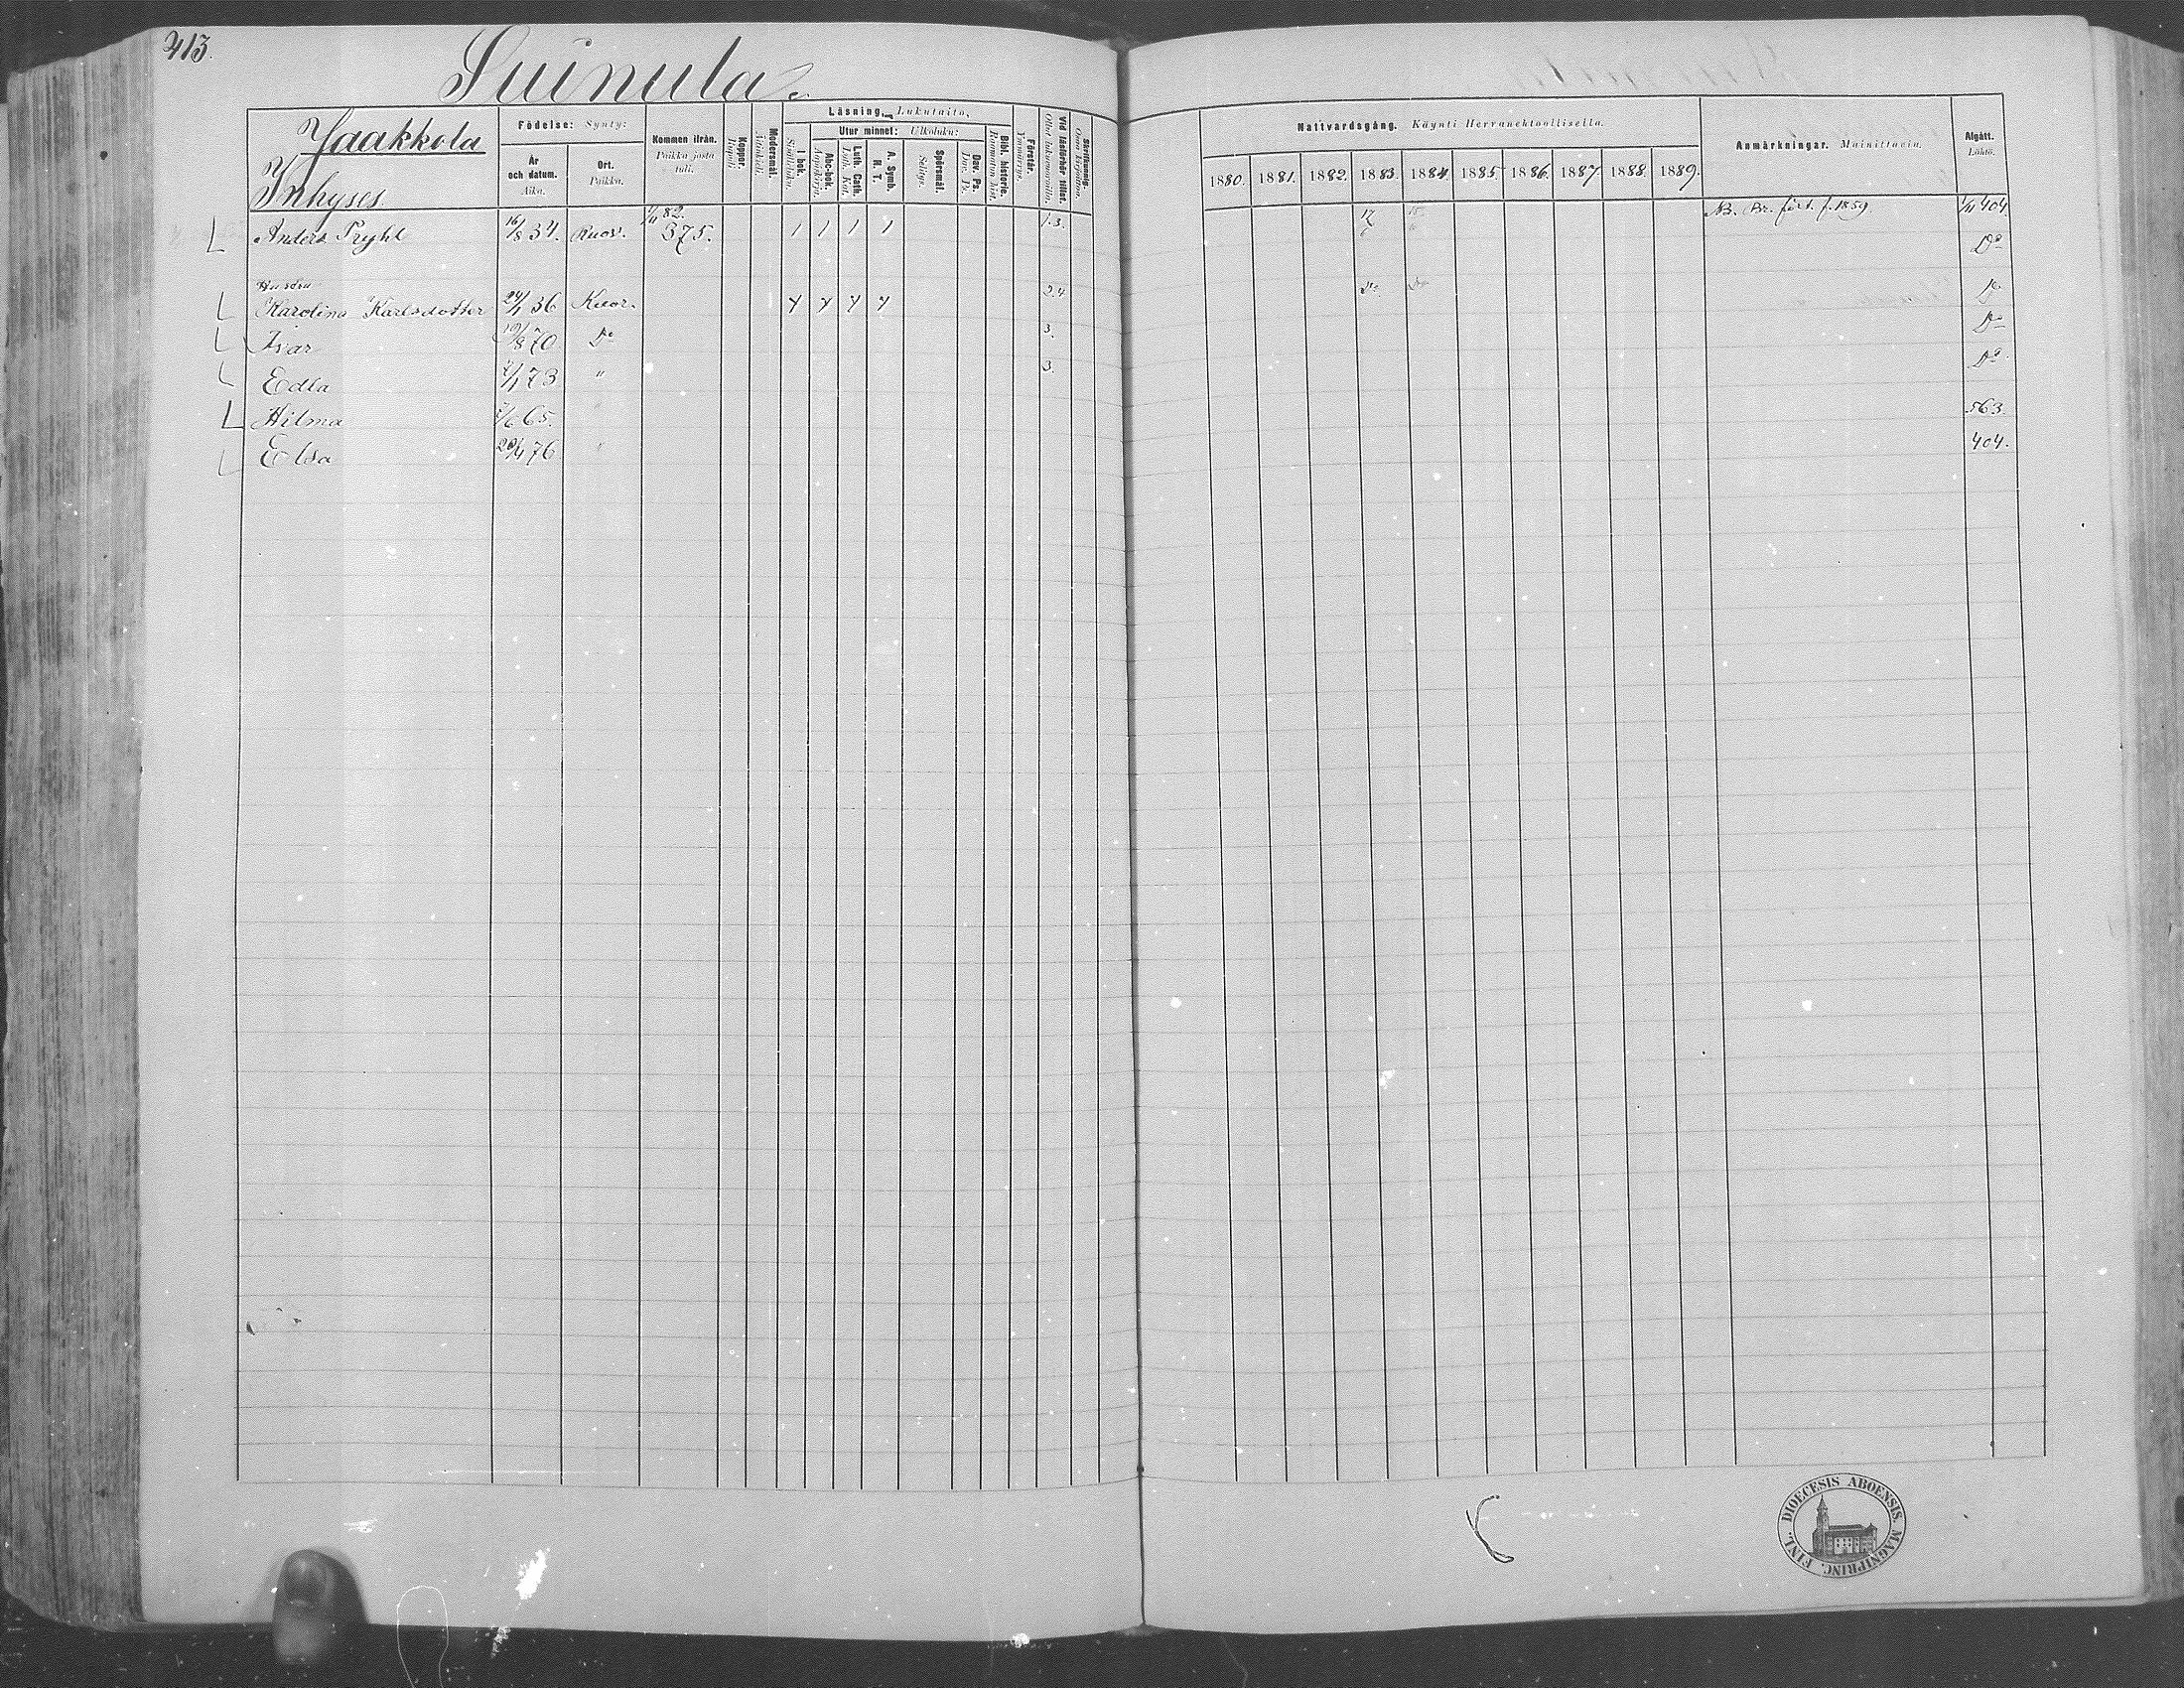 413.
Suinula.
Jaakkola
Inhyses
Födelse: Synty:
År och datum. Aika.
Ort. Paikka.
Kommen ifrån. Paikka josta tuli.
Koppor. Rupuli.
Modersmål. Äitinkieli.
Läsning, Lukutaito,
I bok. Sisälluku.
Utur minnet: Ulkoluku:
Abc-bok. Aapiskirja.
Luth. Cath. Luth. Kat.
A. Symb. R. T.
Spörsmål. Selitys.
Dav. Ps. Dav. Ps.
Bibl. historie. Raamatun hist.
Förstår. Ymmärrys.
Vid läsförhör tillst. Ollut lukuvuoroilla.
Skrifkunnig. Osaa kirjoittaa.
Nattvardsgång. Käynti Herranehtoollisella.
1880. 1881. 1882. 1883. 1884. 1885 1886. 1887. 1888. 1889.
Anmärkningar. Muistettavia.
Afgått. Lähtö.
Anders Pryhl 16/8 34. Ruov. 1/11 82. 375. 1 1 1 1 1.3. 17 NB. Br. fört. f. 1859. 404
Do
Hustru
Karolina Karlsdotter 24/1 36 Kuor. 2.4 Do. Do Do
Ivar 19/8 70 Do 3. Do
Edla 2/1 73 " 3. Do
Hilma 7/6 65. " 563.
Elsa 20/4 76 " 404.
DIOECESIS ABOENSIS. MAGNIPRINC. FINL.